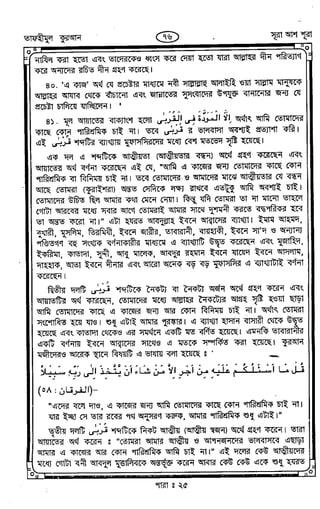 তাফহীমুল কুরআন ৭৬ সূরা আশ শূরা
নাযিল করা হতো এবং তাদেরকেও ধ্বংস করে দেয়া হতো যারা আল্লাহর দীন পরিত্যাগ
করে অন্যদের রচিত দীন গ্রহণ করেছে।
৪০. 'এ কাজ' অর্থ যে প্রচেষ্টার মাধ্যমে নবী সাল্লাল্লাহু আলাইহি ওয়া সাল্লাম মানুষকে
আল্লাহর আযাব থেকে বাঁচানো এবং জান্নাতের সুসংবাদের উপযুক্ত বানানোর জন্য যে
প্রচেষ্টা চালিয়ে যাচ্ছিলেন।
৪১. মূল আয়াতের বাক্যাংশ হলো إِلَّا الْمَوَدَّةَ فِي الْقُرْبَىٰ অর্থাৎ আমি তোমাদের
কাছে কোন পারিশ্রমিক চাই না। তবে قُرْبَىٰ র ভালবাসা অবশ্যই প্রত্যাশা করি।
এই قُرْبَىٰ শব্দটির ব্যাখ্যায় মুফাসসিরদের মধ্যে বেশ মতভেদ সৃষ্টি হয়েছে।
এক দল এ শব্দটিকে আত্মীয়তা (আত্মীয়তার বন্ধন) অর্থে গ্রহণ করেছেন এবং
আয়াতের অর্থ বর্ণনা করেছেন এই যে, "আমি এ কাজের জন্য তোমাদের কাছে কোন
পারিশ্রমিক বা বিনিময় চাই না। তবে তোমাদের ও আমাদের মাঝে আত্মীয়তার যে বন্ধন
আছে তোমরা (কুরাইশরা) অন্তত সেদিকে লক্ষ্য রাখবে এতটুকু আমি অবশ্যই চাই।
তোমাদের উচিত ছিল আমার কথা মেনে নেয়া। কিন্তু যদি তোমরা তা না মানো তাহলে
গোটা আরবের মধ্যে সবার আগে তোমরাই আমার সাথে দুশমনী করতে বদ্ধপরিকর হবে
তা অন্তত করো না।" এটা হযরত আবদুল্লাহ ইবনে আব্বাসের ব্যাখ্যা। ইমাম আহমদ,
বুখারী, মুসলিম, তিরমিযী, ইবনে জারীর, তাবারানী, বায়হাকী, ইবনে সা'দ ও অন্যান্য
পণ্ডিতগণ বহু সংখ্যক বর্ণনাকারীর মাধ্যমে এ ব্যাখ্যাটি উদ্ধৃত করেছেন এবং মুজাহিদ,
ইকরিমা, কাতাদা, সুদ্দী, আবু মালেক, আবদুর রহমান ইবনে যায়েদ ইবনে আসলাম,
দাহহাক, আতা ইবনে দীনার এবং আরো অনেক বড় বড় মুফাসসির এ ব্যাখ্যাটাই বর্ণনা
করেছেন।
দ্বিতীয় দলটি قُرْبَىٰ শব্দটিকে নৈকট্য বা নৈকট্য অর্জন অর্থে গ্রহণ করেন এবং
আয়াতটির অর্থ করেছেন, তোমাদের মধ্যে আল্লাহর নৈকট্যের আগ্রহ সৃষ্টি হওয়া ছাড়া
আমি তোমাদের কাছে এ কাজের জন্য আর কোন বিনিময় চাই না। অর্থাৎ তোমরা
সংশোধিত হয়ে যাও। শুধু এটাই আমার পুরস্কার। এ ব্যাখ্যা হাসান বাসারী থেকে উদ্ধৃত
হয়েছে এবং কাতাদা থেকেও এর সমর্থনে একটি মত বর্ণিত হয়েছে। এমনকি তাবারানীর
একটি বর্ণনায় ইবনে আব্বাসের সাথেও এ মতকে সম্পর্কিত করা হয়েছে। কুরআন
মজীদেরও আরেক স্থানে বিষয়টি এ ভাষায় বলা হয়েছে :
قُلْ مَا أَسْئَلُكُمْ عَلَيْهِ مِنْ أَجْرٍ إِلَّا مَنْ شَاءَ أَنْ يَتَّخِذَ إِلَىٰ رَبِّهِ سَبِيلًا
(الفرقان : ৫৮)
"এদের বলে দাও, এ কাজের জন্য আমি তোমাদের কাছে কোন পারিশ্রমিক চাই না।
যার ইচ্ছা সে তার রবের পথ অনুসরণ করুক, আমার পারিশ্রমিক শুধু এটাই।"
তৃতীয় দলটি قُرْبَىٰ শব্দটিকে নিকট আত্মীয় (আত্মীয় স্বজন) অর্থে গ্রহণ করেন। তারা
আয়াতের অর্থ করেন : "তোমরা আমার আত্মীয় ও আপনজনদের ভালবাসবে এছাড়া
আমার এ কাজের আর কোন পারিশ্রমিক চাই না।" এই দলের কেউ আত্মীয়দের
মধ্যে গোটা বনী আবদুল মুত্তালিবকে অন্তর্ভুক্ত করেন আবার কেউ কেউ একে শুধু হযরত
পারা : ২৫